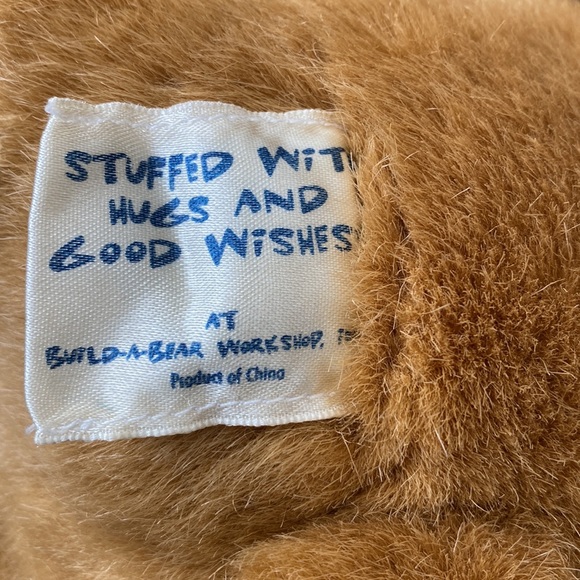 STUFFED WITH
HUGS AND
GOOD WISHES
AT
BUILD-A-BEAR WORKSHOP,
Product of China